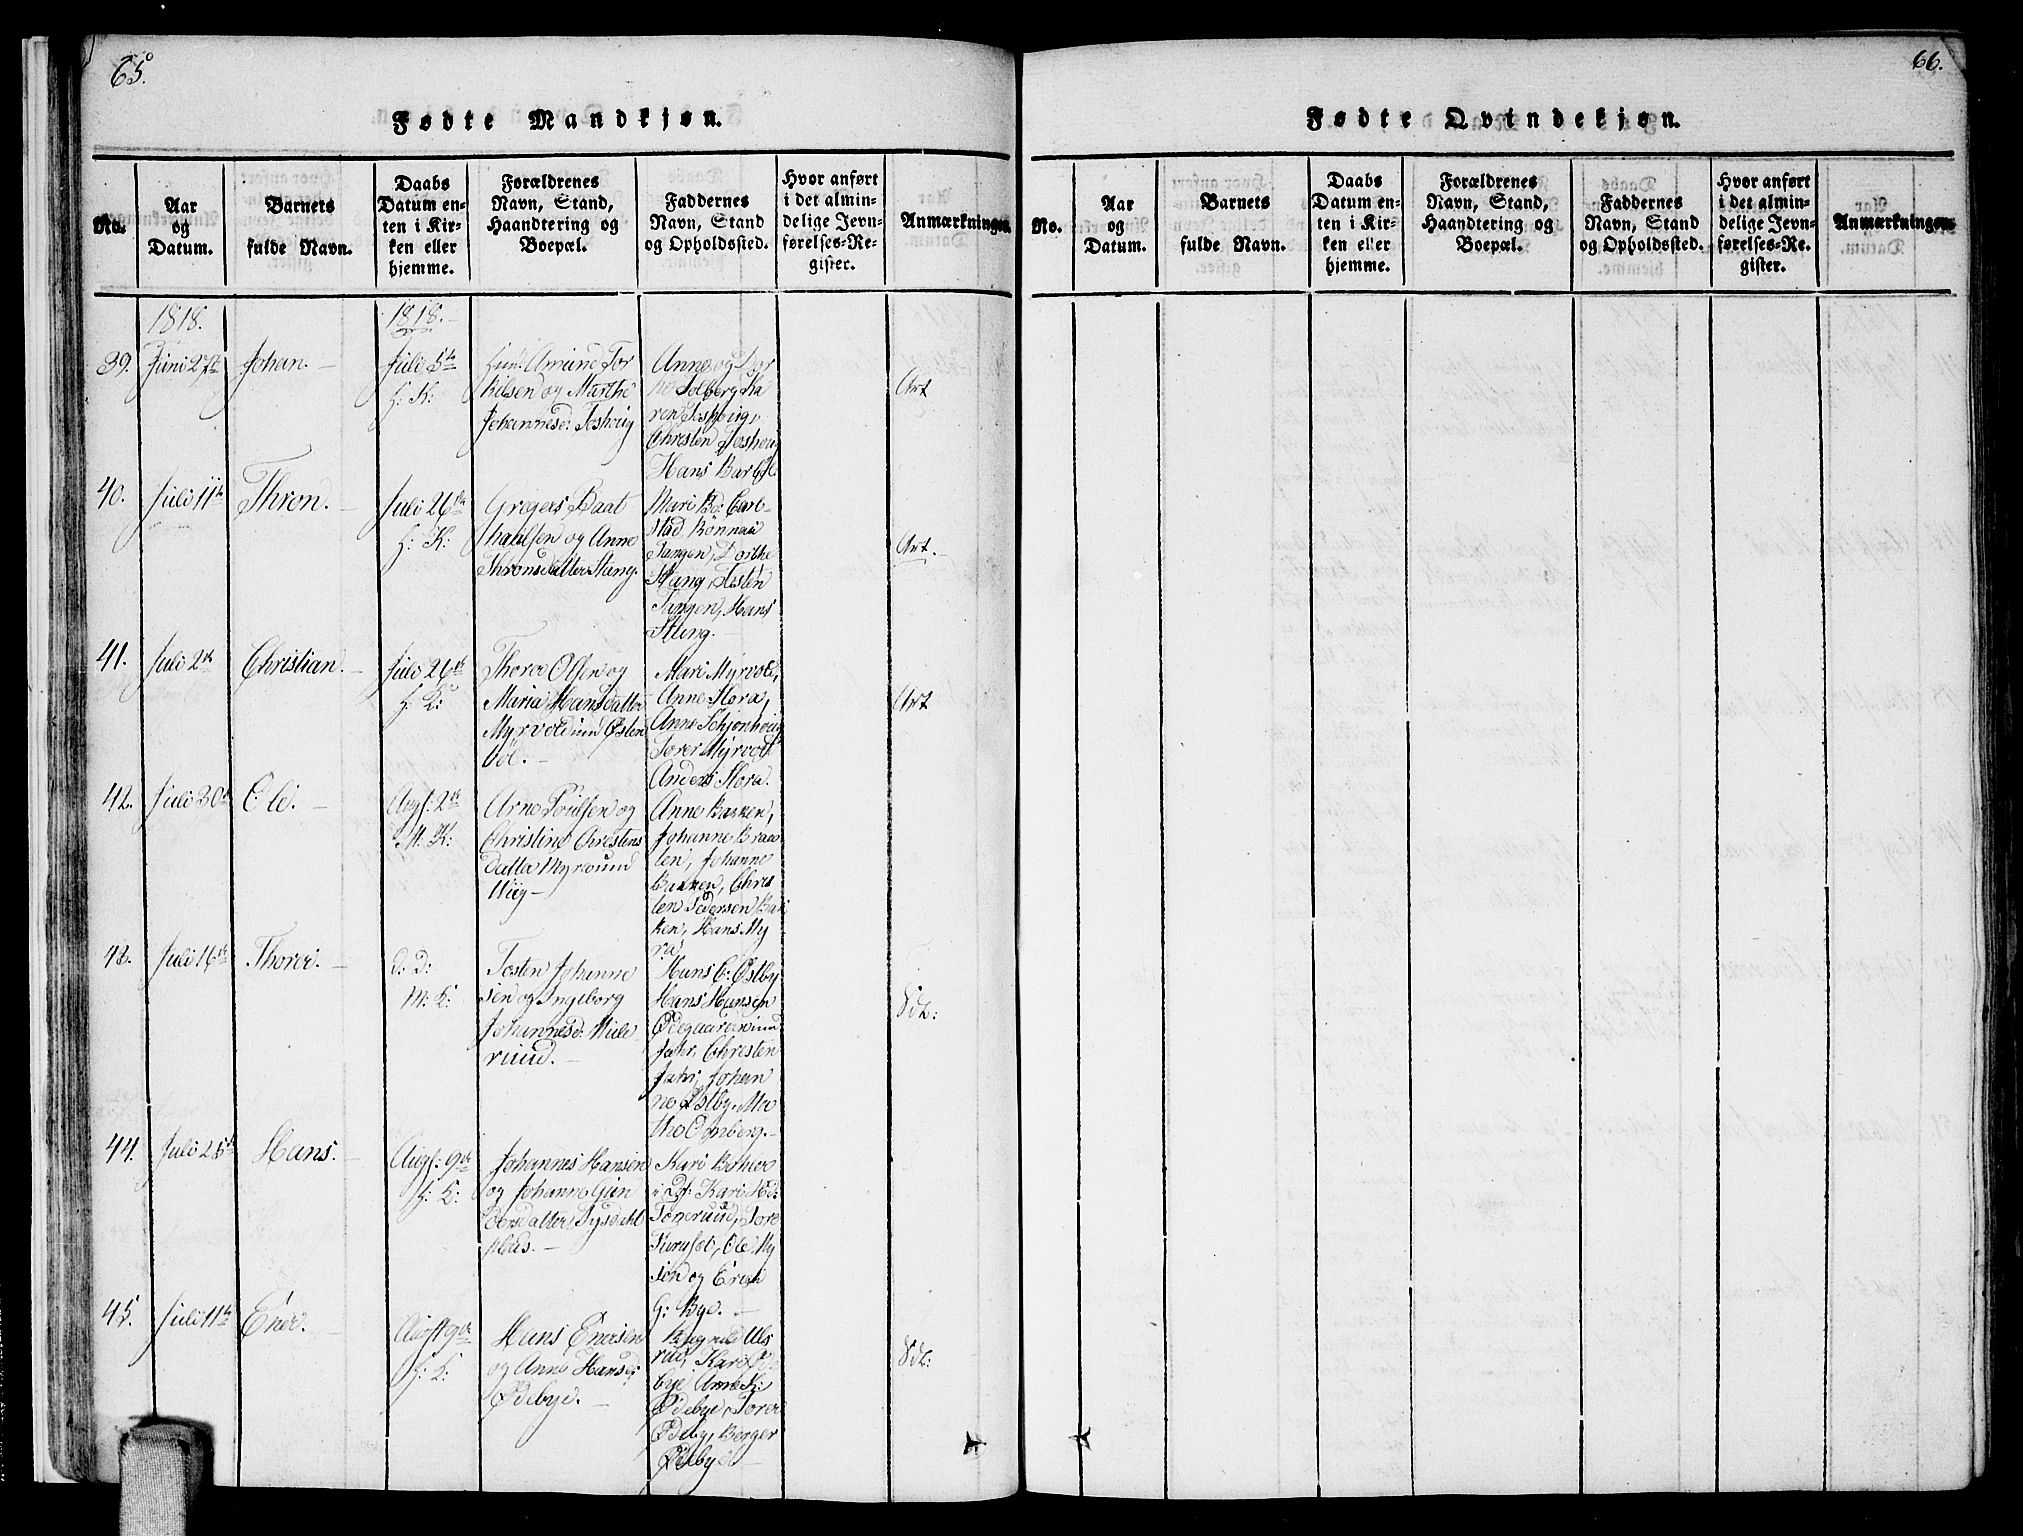 65.
Fødte Mandkjøn.
No.
Aar
og
Datum.
Barnets
fulde Navn.
Daabs
Datum en-
ten i Kir-
ken eller
hjemme.
Forældrenes
Navn, Stand,
Haandtering og
Boepæl.
Faddernes
Navn, Stand
og Opholdssted.
Hvor anført
i det almin-
delige Jevn-
førelses-Re-
gister.
Anmærkninger.
1818.
1818.
39.
Juni 27de
Johan.
Juli 5te
H: K:
Amund Tor
kilsen og Marthe
Johannesd: Toshoug
Anne og
Solberg, Ka
ren Toshoug,
Christen Toshoug
Hans Barbøl
Art
40.
Juli 11te
Thron.
Juli 26de
H: K:
Gregers Baat
og Anne
Thronsdatter Stang.
Mari
stad
Tangen, Dorthe
Stang, Testen
Tangen, Hans
Stang.
Art.
41.
Juli 2de
Christian.
Juli 26de
H: K:
Thorer Olsen og
Maria Hansdatter
Myrvold und Østen
Vøl.
Mari Myrvold,
Anne Hora,
Anne Schjonhoug
Torer Myrvold
Anders Hora.
Art
42.
Juli 30te
Ole.
Aug: 2de
M: K:
Arne Poulsen og
Christine Christens
datter Myr und
Wiig
Anne Bakken,
Johanne Braa
ten, Johanne
Bakken, Chris
ten Pedersen Bak
ken, Hans My
ra
43.
Juli 16de
Thorer.
d: D:
M: K:
Testen Johanne
sen og Ingeborg
Johannesd:
rud.
Hans C: Østby
Hans Hansen
Ødegaarden und
Jahr, Christen
Jahr, Johan
ne Østby, Mar
the
Vdb:
44.
Juli 25de
Hans.
Aug: 9de
H: K:
Johannes Hansen
og Johanne Gun
dersdatter
Kari
Kari
Tore
Ole My
sen og
G: Bye.
45.
Juli 11te
Ener.
Aug: 9de
H: K:
Hans Enersen
og Anne Hansd:
Ødebye.
Uls
rud, Kari Øde
bye Anne K:
Ødebye, Torer
Ødeby, Berger
Ødeby
Vdb:
66.
Fødte Qvindekjøn.
No.
Aar
og
Datum.
Barnets
fulde Navn.
Daabs
Datum en-
ten i Kir-
ken eller
hjemme.
Forældrenes
Navn, Stand,
Haandtering og
Boepæl.
Faddernes
Navn, Stand
og Opholdssted.
Hvor anført
i det almin-
delige Jevn-
førelses-Re-
gister.
Anmærkninger.